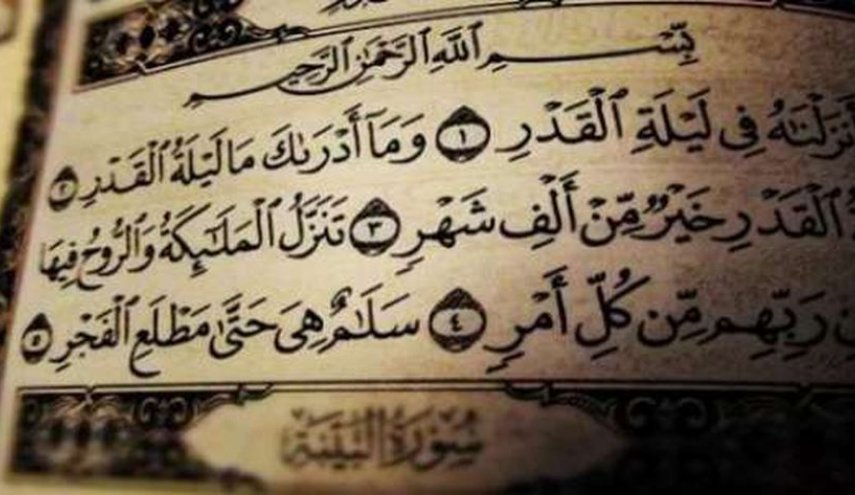 بِّسْمِ ٱللَّهِ ٱلرَّحْمَٰنِ ٱلرَّحِيمِ
أَنزَلْنَٰهُ فِى لَيْلَةِ ٱلْقَدْرِ ١ وَمَآ أَدْرَىٰكَ مَا لَيْلَةُ ٱلْقَدْرِ ٢
ٱلْقَدْرِ خَيْرٌ مِّنْ أَلْفِ شَهْرٍ ٣ تَنَزَّلُ ٱلْمَلَٰٓئِكَةُ وَٱلرُّوحُ فِيهَا
رَبِّهِم مِّن كُلِّ أَمْرٍ ٤ سَلَٰمٌ هِىَ حَتَّىٰ مَطْلَعِ ٱلْفَجْرِ ٥
سُورَةُ البَيِّنَةِ